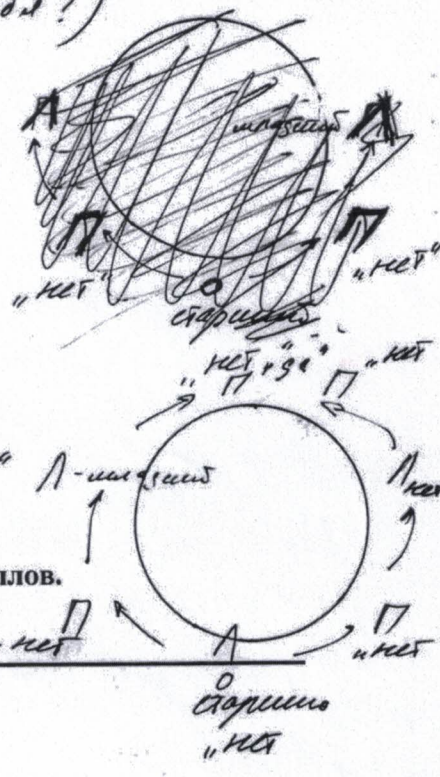 Л
младший
Л
П
П
„нет“
„нет“
старший
„нет „да“
П
П „нет
Л - младший
Л нет
ылов.
П
нет
П
„нет
Л
старший
„нет